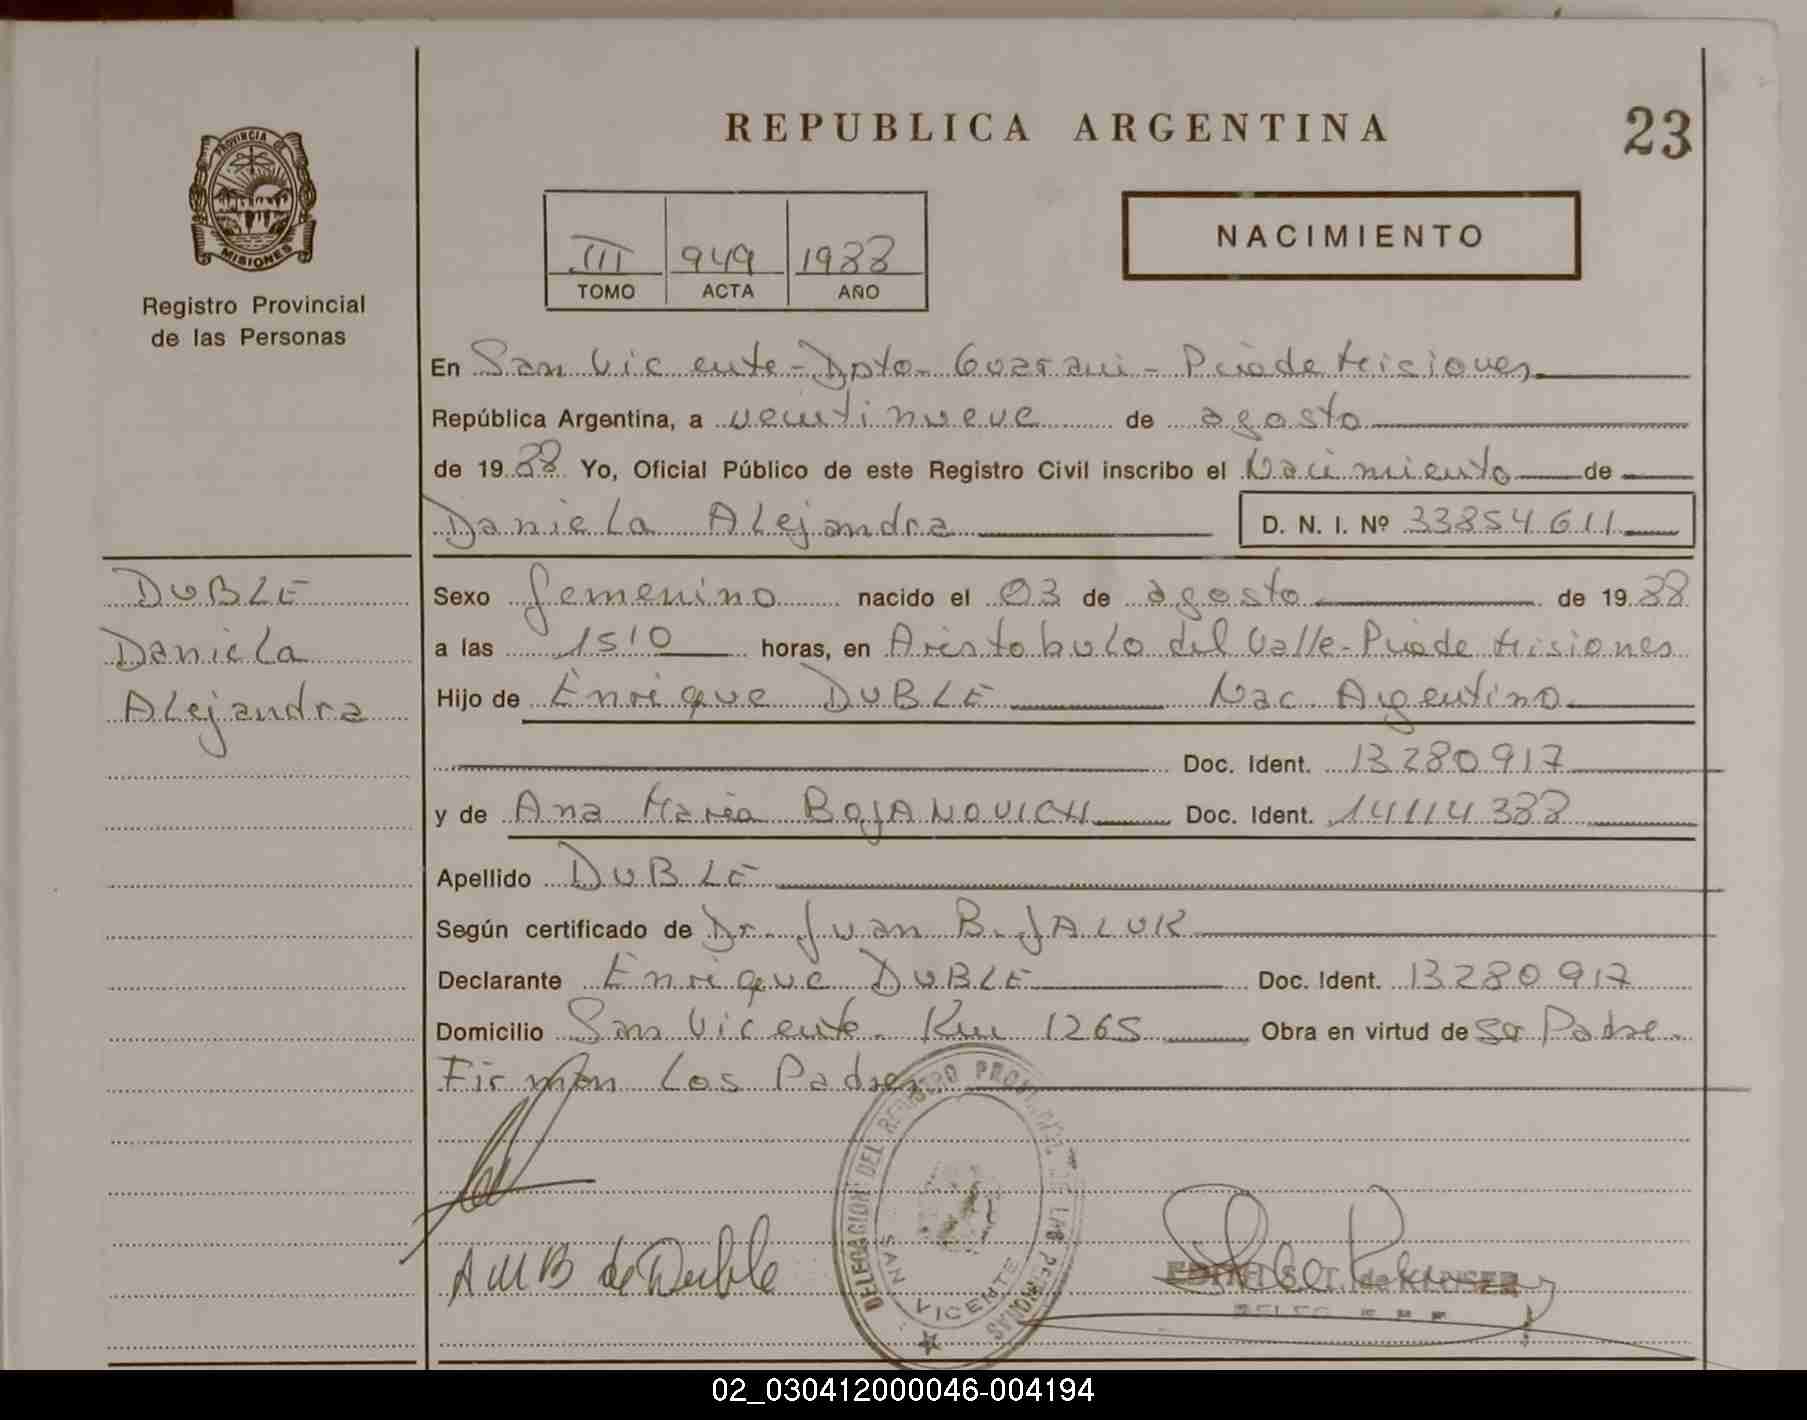 REPUBLICA ARGENTINA
23
PROVINCIA DE
MISIONES
Registro Provincial
de las Personas
III 949 1988
TOMO ACTA AÑO
NACIMIENTO
En San Vicente - Dpto - Guarani - Pciade Misiones
República Argentina, a veintinueve de agosto
de 1988 Yo, Oficial Público de este Registro Civil inscribo el Nacimiento de
Daniela Alejandra D. N. I. Nº 33854611
DUBLE
Daniela
Alejandra
Sexo femenino nacido el 03 de agosto de 1988
a las 1510 horas, en Aristobulo del Valle - Pciade Misiones
Hijo de Enrique DUBLE Nac. Argentino
Doc. Ident. 13280917
y de Ana Maria BOJANOVICH Doc. Ident. 14114388
Apellido DUBLE
Según certificado de Dr. Juan B. JALUK
Declarante Enrique DUBLE Doc. Ident. 13280917
Domicilio San Vicente - Km 1265 Obra en virtud de ser Padre -
Firman los Padres
DELEGACION DEL REGISTRO PROVINCIAL DE LAS PERSONAS
SAN VICENTE
AMB de Duble
02_030412000046-004194